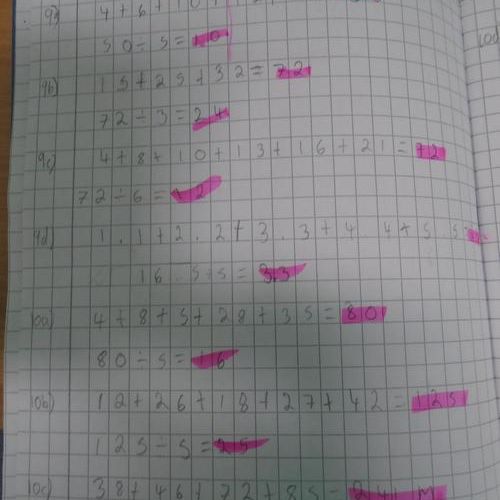 9a) 4+6+10+
50÷5=10
9b) 15+25+32=72
72÷3=24
9c) 4+8+10+13+16+21=72
72÷6=12
9d) 1.1+2.2+3.3+4.4+5.5
16.5÷5=3.3
10a) 4+8+5+28+35=80
80÷5=16
10b) 12+26+18+27+42=125
125÷5=25
10c) 38+46+72+85=241